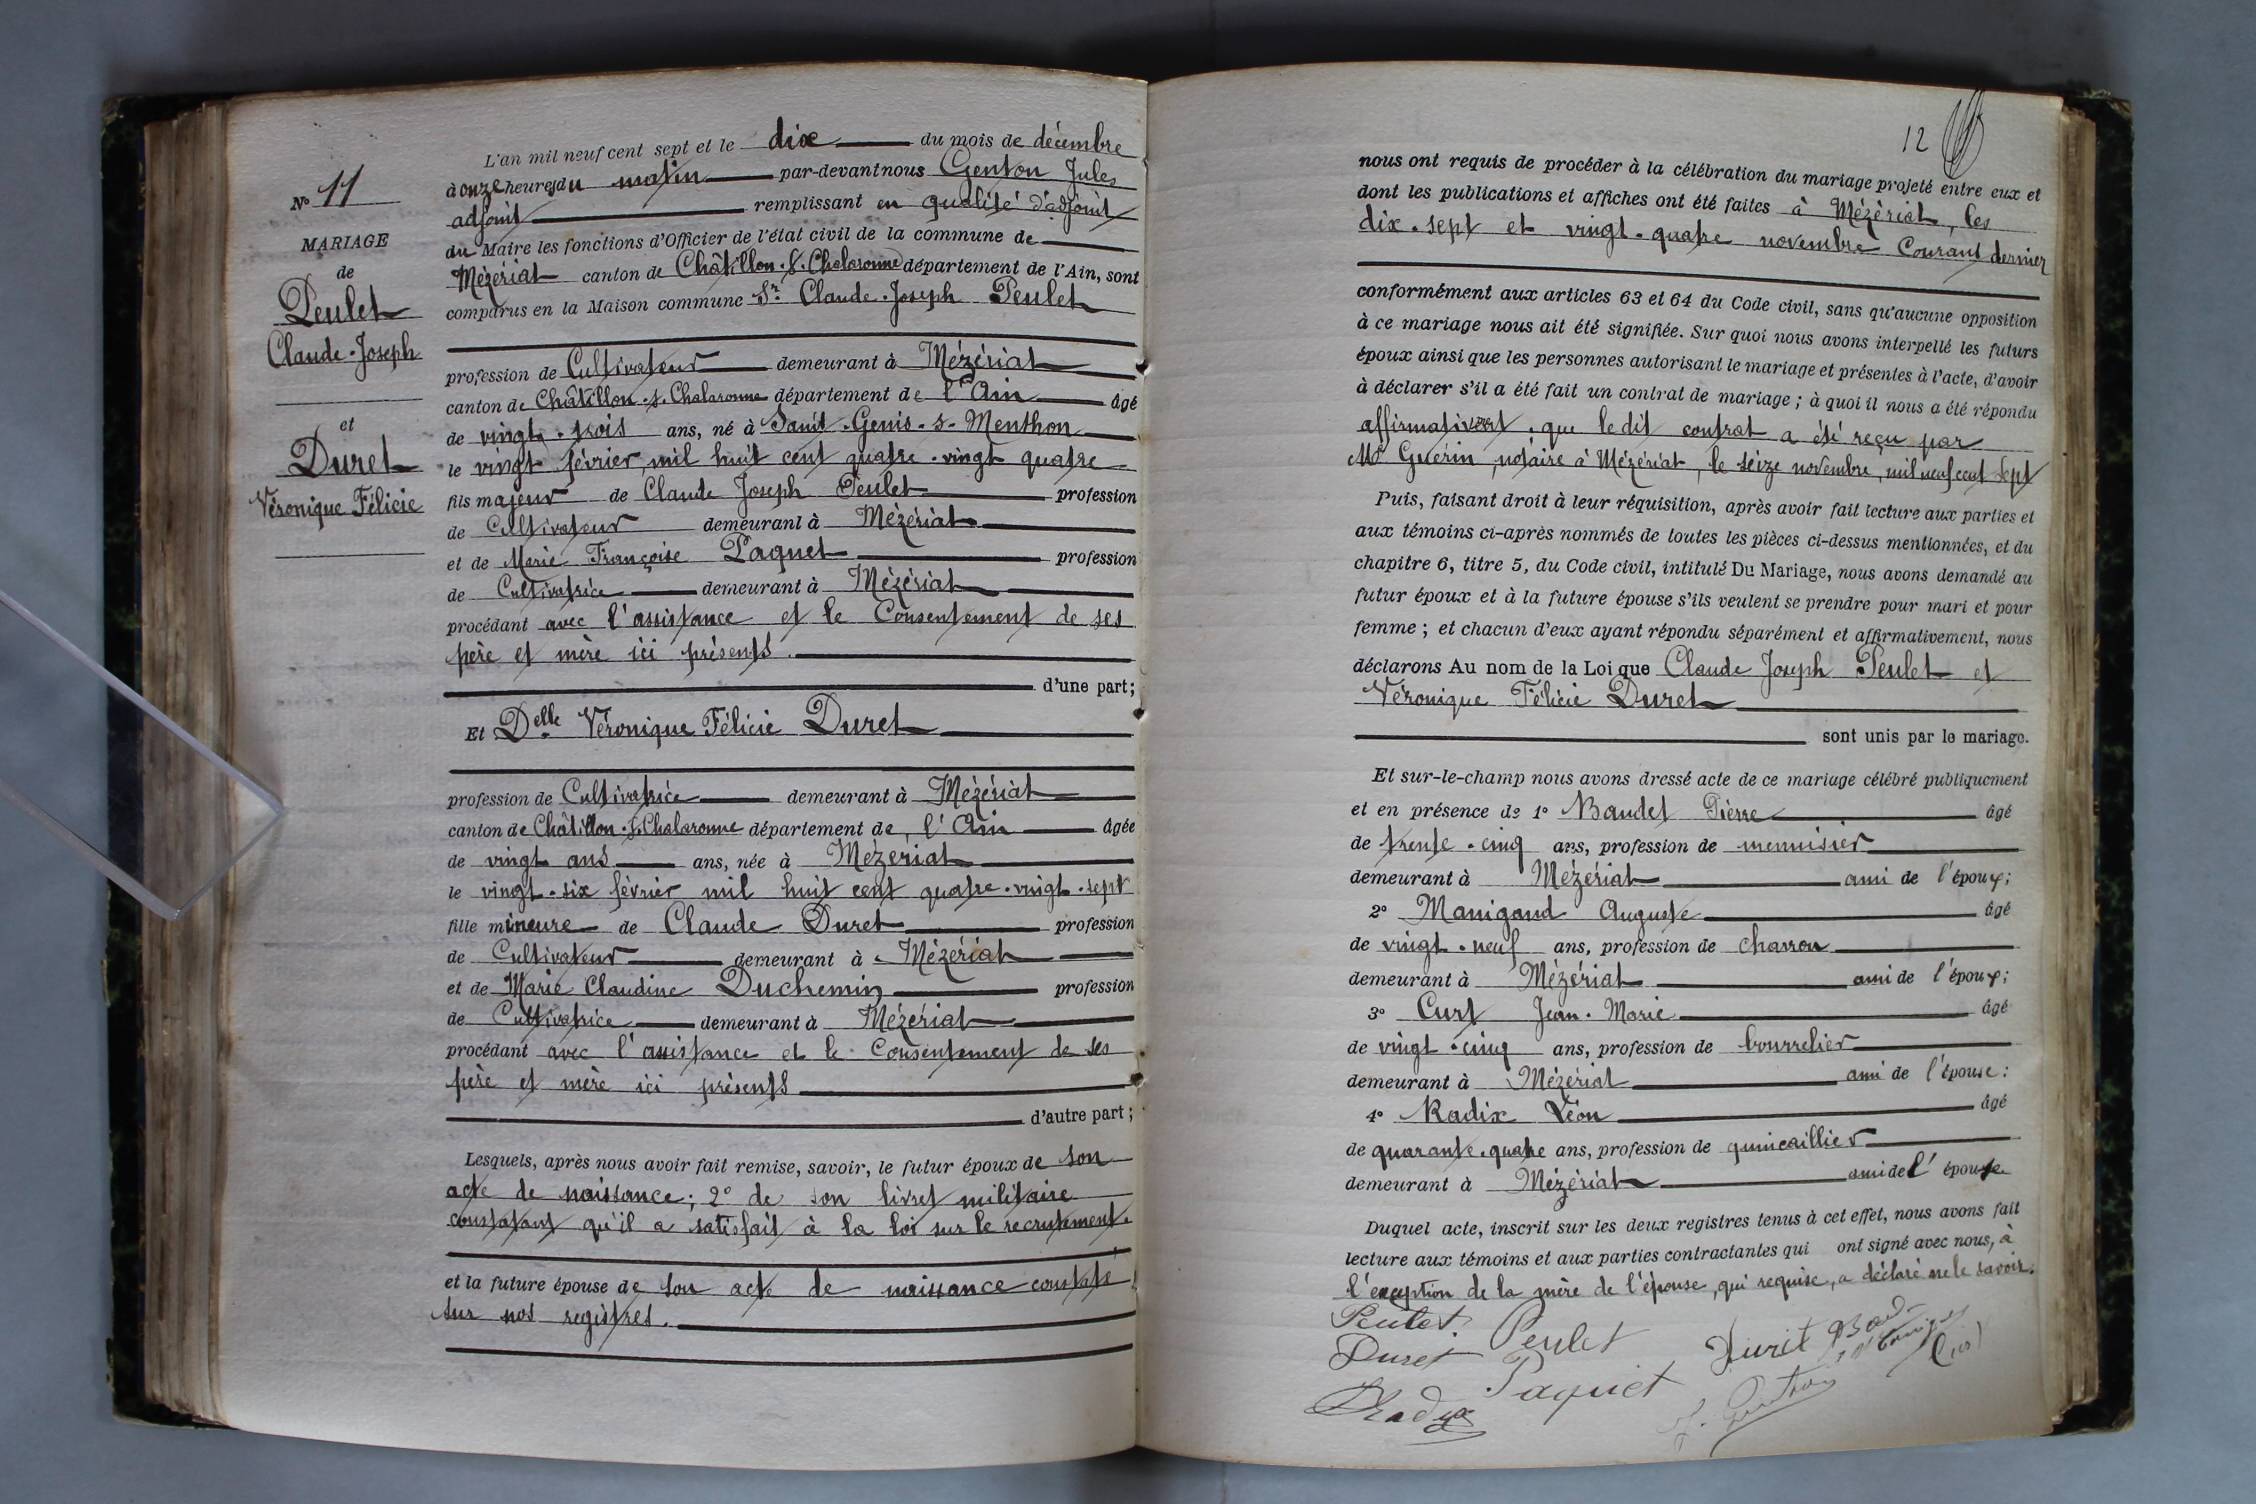 N° 11
MARIAGE
de
Peulet
Claude-Joseph
et
Duret
Véronique Félicie
L'an mil neuf cent sept et le dix du mois de décembre
à onze heures du matin par-devant nous Genton Jules
adjoint remplissant en qualité d'adjoint
du Maire les fonctions d'Officier de l'état civil de la commune de
Mézériat canton de Châtillon-s-Chalaronne département de l'Ain, sont
comparus en la Maison commune Sr. Claude-Joseph Peulet
profession de Cultivateur demeurant à Mézériat
canton de Châtillon-s-Chalaronne département de l'Ain âgé
de vingt-trois ans, né à Saint-Genis-s-Menthon
le vingt février mil huit cent quatre-vingt quatre
fils majeur de Claude Joseph Peulet profession
de Cultivateur demeurant à Mézériat
et de Marie Françoise Paquet profession
de Cultivatrice demeurant à Mézériat
procédant avec l'assistance et le Consentement de ses
père et mère ici présents.
d'une part;
Et Delle Véronique Félicie Duret
profession de Cultivatrice demeurant à Mézériat
canton de Châtillon-s-Chalaronne département de l'Ain âgée
de vingt ans ans, née à Mézériat
le vingt-six février mil huit cent quatre-vingt-sept
fille mineure de Claude Duret profession
de Cultivateur demeurant à Mézériat
et de Marie Claudine Duchemin profession
de Cultivatrice demeurant à Mézériat
procédant avec l'assistance et le Consentement de ses
père et mère ici présents
d'autre part;
Lesquels, après nous avoir fait remise, savoir, le futur époux de son
acte de naissance; 2° de son livret militaire
constatant qu'il a satisfait à la loi sur le recrutement.
et la future épouse de son acte de naissance constaté
sur nos registres.
12
nous ont requis de procéder à la célébration du mariage projeté entre eux et
dont les publications et affiches ont été faites à Mézériat, les
dix-sept et vingt-quatre novembre Courant dernier
conformément aux articles 63 et 64 du Code civil, sans qu'aucune opposition
à ce mariage nous ait été signifiée. Sur quoi nous avons interpellé les futurs
époux ainsi que les personnes autorisant le mariage et présentes à l'acte, d'avoir
à déclarer s'il a été fait un contrat de mariage; à quoi il nous a été répondu
affirmativemt. que le dit contrat a été reçu par
Me Guérin, notaire à Mézériat, le seize novembre, mil neuf cent sept
Puis, faisant droit à leur réquisition, après avoir fait lecture aux parties et
aux témoins ci-après nommés de toutes les pièces ci-dessus mentionnées, et du
chapitre 6, titre 5, du Code civil, intitulé Du Mariage, nous avons demandé au
futur époux et à la future épouse s'ils veulent se prendre pour mari et pour
femme; et chacun d'eux ayant répondu séparément et affirmativement, nous
déclarons Au nom de la Loi que Claude Joseph Peulet et
Véronique Félicie Duret
sont unis par le mariage.
Et sur-le-champ nous avons dressé acte de ce mariage célébré publiquement
et en présence de 1° Baudet Pierre âgé
de trente-cinq ans, profession de menuisier
demeurant à Mézériat ami de l'époux;
2° Manigand Auguste âgé
de vingt-neuf ans, profession de charron
demeurant à Mézériat ami de l'époux;
3° Curt Jean-Marie âgé
de vingt-cinq ans, profession de bourrelier
demeurant à Mézériat ami de l'épouse:
4° Radix Léon âgé
de quarante-quatre ans, profession de quincaillier
demeurant à Mézériat ami de l'épouse
Duquel acte, inscrit sur les deux registres tenus à cet effet, nous avons fait
lecture aux témoins et aux parties contractantes qui ont signé avec nous, à
l'exception de la mère de l'épouse, qui requise, a déclaré ne le savoir.
Peulet
Peulet
Duret
Duret
Paquet
Radix
J. Genton
Curt